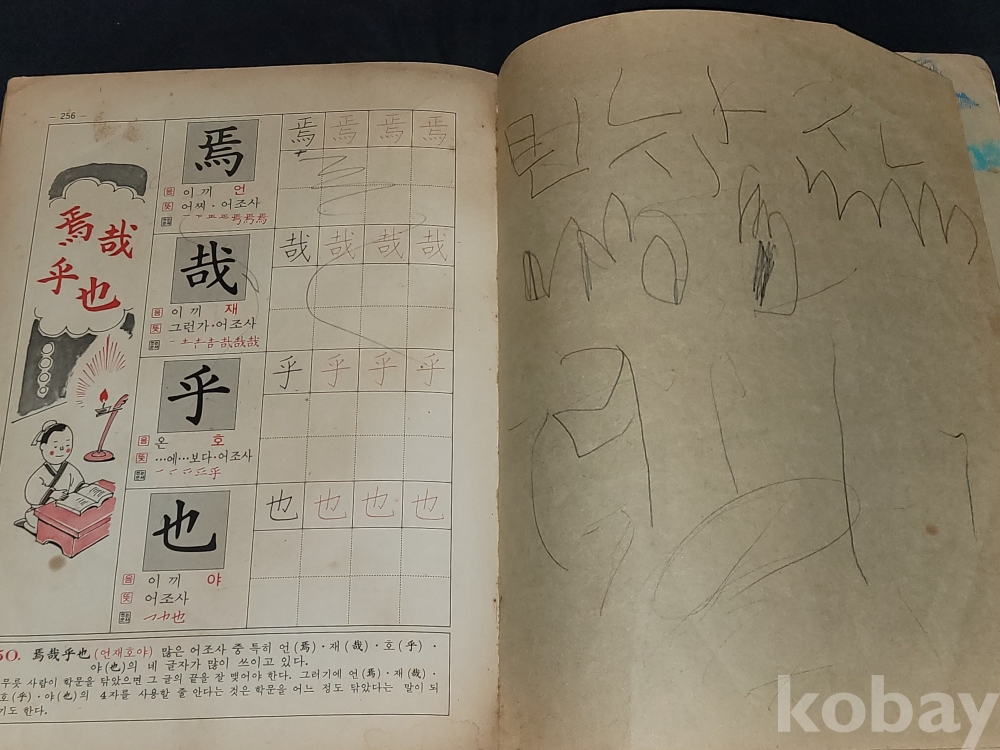 - 256 -
焉哉
乎也
焉 焉 焉 焉 焉
음 이끼 언
뜻 어찌·어조사
哉 哉 哉 哉 哉
음 이끼 재
뜻 그런가·어조사
乎 乎 乎 乎 乎
음 온 호
뜻 …에…보다·어조사
也 也 也 也 也
음 이끼 야
뜻 어조사
50. 焉哉乎也(언재호야) 많은 어조사 중 특히 언(焉)·재(哉)·호(乎)·
야(也)의 네 글자가 많이 쓰이고 있다.
무릇 사람이 학문을 닦았으면 그 글의 끝을 잘 맺어야 한다. 그러기에 언(焉)·재(哉)·
호(乎)·야(也)의 4자를 사용할 줄 안다는 것은 학문을 어느 정도 닦았다는 말이 되
기도 한다.
kobay